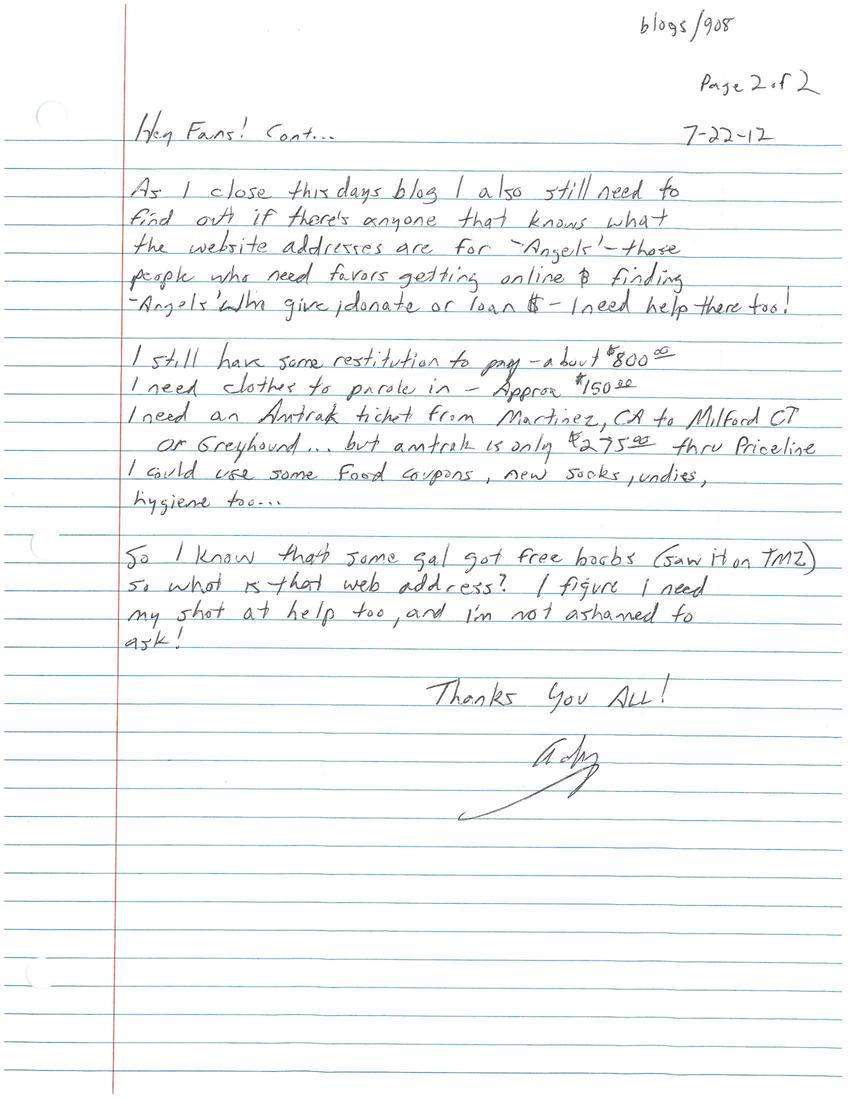 blogs/908
Page 2 of 2
Hey Fans! Cont...
7-22-12
As I close this days blog I also still need to
find out if there's anyone that knows what
the website addresses are for -"Angels"- those
people who need favors getting online & finding
-"Angels" who give, donate or loan $ - I need help there too!
I still have some restitution to pay - about $800.00
I need clothes to parole in - Approx $150.00
I need an Amtrak ticket from Martinez, CA to Milford CT
or Greyhound... but amtrak is only $275.00 thru Priceline
I could use some food coupons, new socks, undies,
hygiene too...
So I know that some gal got free boobs (saw it on TMZ)
so what is that web address? I figure I need
my shot at help too, and I'm not ashamed to
ask!
Thanks You ALL!